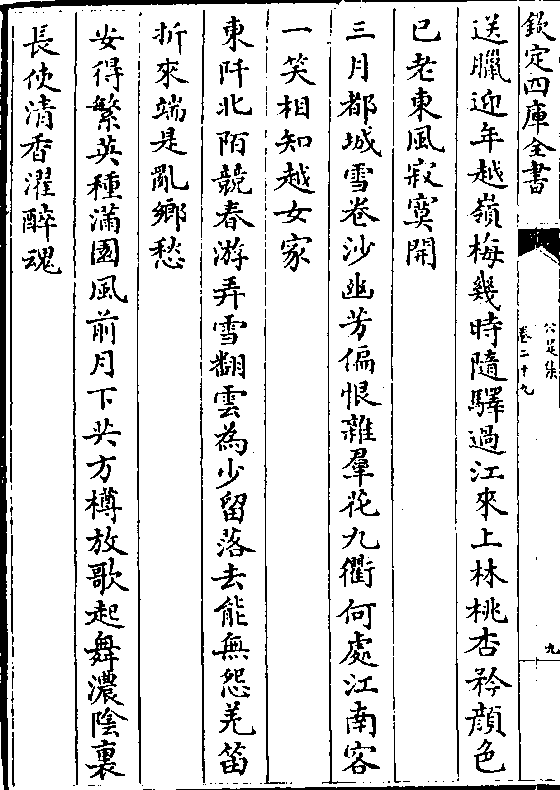 欽定四庫全書
公是集
卷二十九
九
送臘迎年越嶺梅幾時隨驛過江來上林桃杏矜顔色
已老東風寂寞開
三月都城雪卷沙幽芳偏恨雜羣花九衢何處江南客
一笑相知越女家
東阡北陌競春游弄雪翻雲為少留落去能無怨羌笛
折來端是亂鄉愁
安得繁英種滿園風前月下共方樽放歌起舞濃陰裏
長使清香濯醉魂